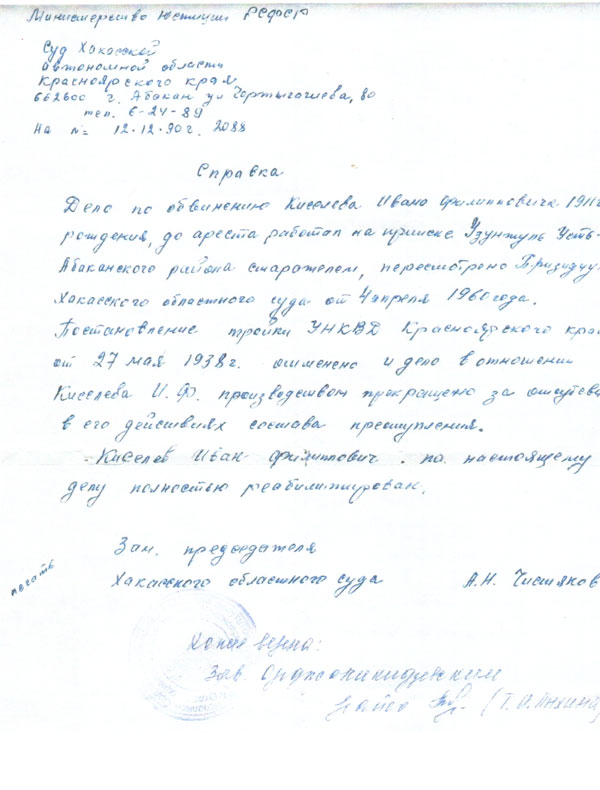 Министерство Юстиции РСФСР
Суд Хакасской
автономной области
Красноярского края
662600 г. Абакан ул Чертыгашева, 80
тел. 6-24-89
На № 12.12.90г. 2088
Справка
Дело по обвинению Киселева Ивана Филипповича 1911г
рождения, до ареста работал на прииске Узунжуль Усть-
Абаканского района старателем, пересмотрено
Хакасского областного суда от 4 апреля 1960 года.
Постановление тройки УНКВД Красноярского кра
от 27 мая 1938г. отменено и дело в отношении
Киселева И.Ф. производством прекращено за отсутств
в его действиях состава преступления.
Киселев Иван Филиппович по настоящему
делу полностью реабилитирован.
Зам. председателя
печать
Хакасского областного суда А.Н. Чистяков
Копия верна:
Зав. Орджоникидзевским